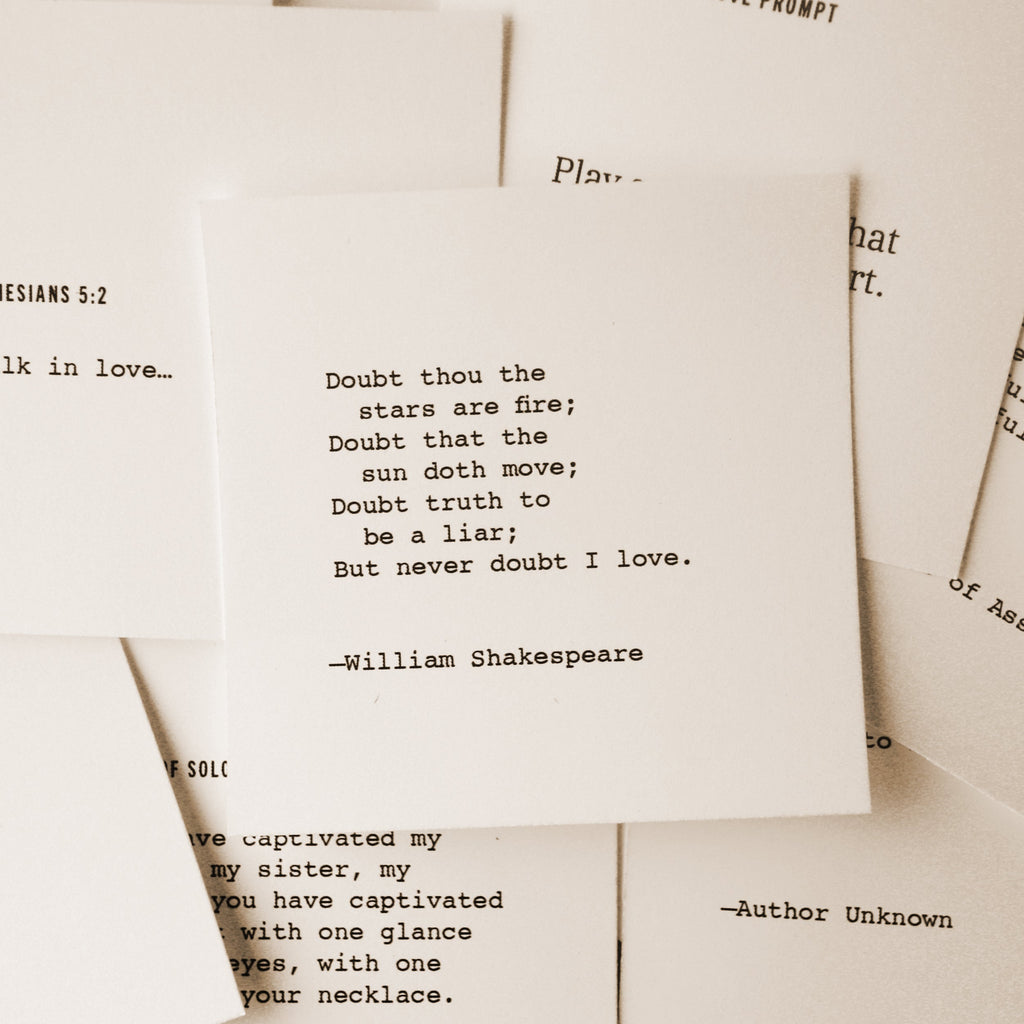 PROMPT
Play
hat
rt.
5:2
lk in love…
Doubt thou the
stars are fire;
Doubt that the
sun doth move;
Doubt truth to
be a liar;
But never doubt I love.
—William Shakespeare
of Ass
to
F SOLO
ve captivated my
my sister, my
you have captivated
with one glance
eyes, with one
your necklace.
—Author Unknown